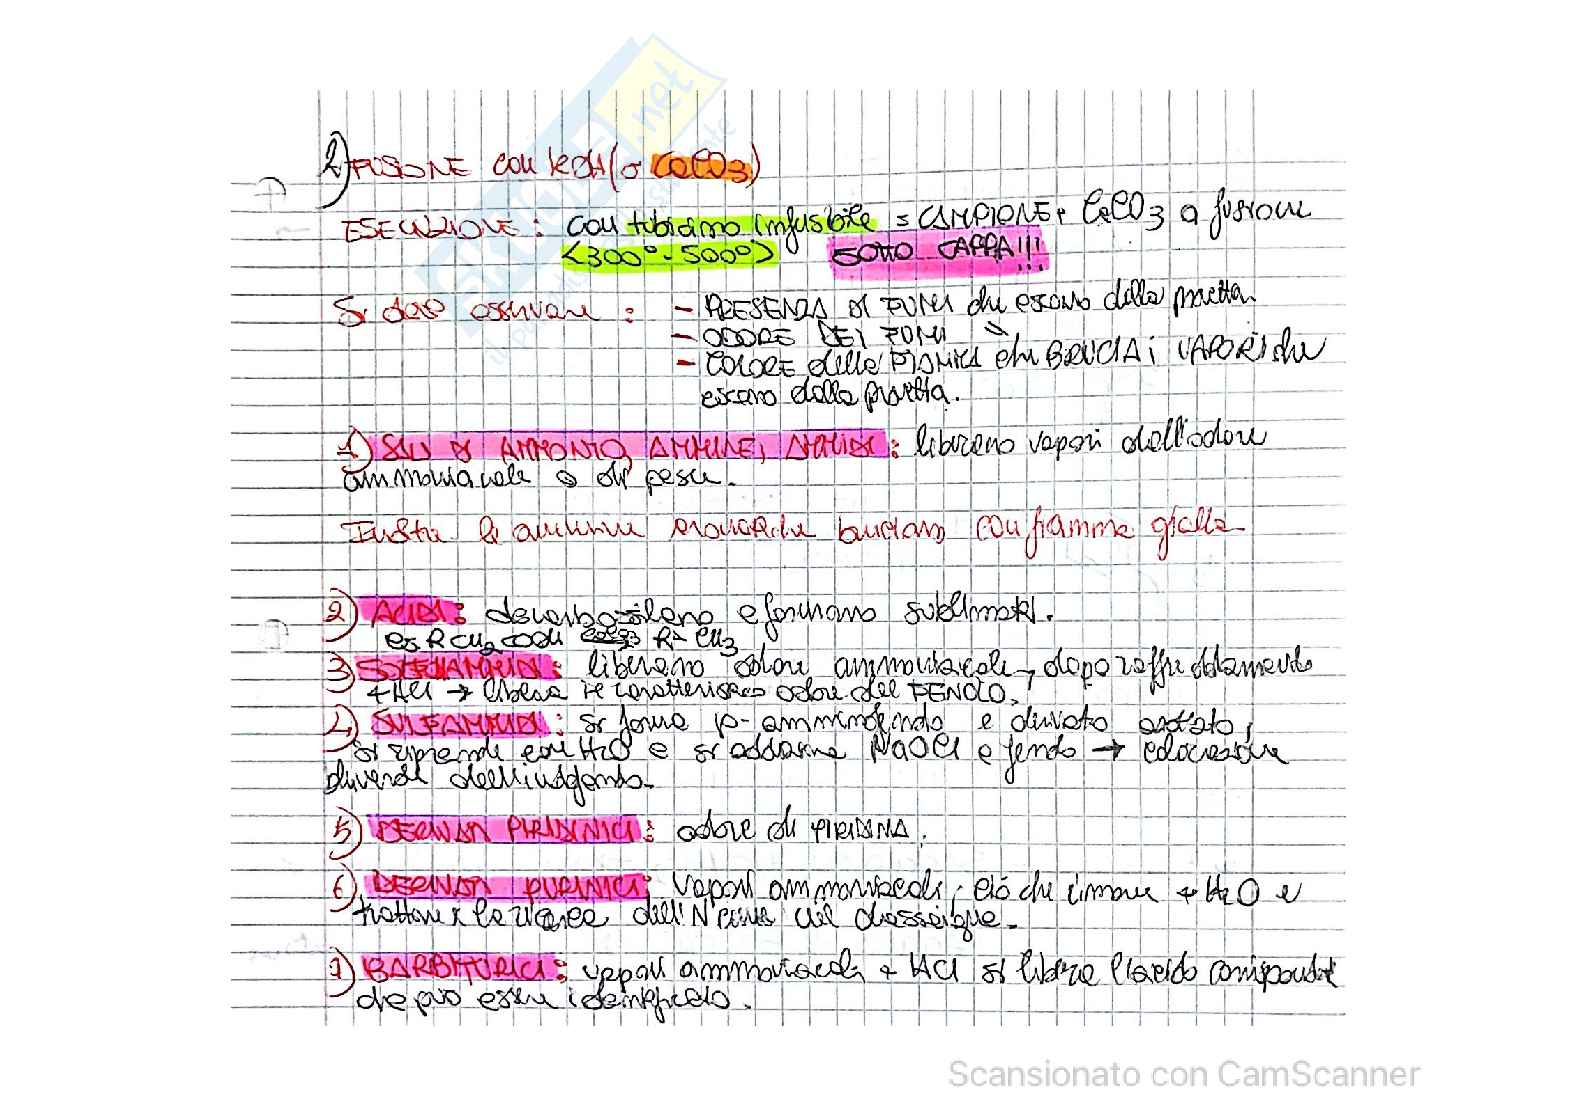 2) FUSIONE con KOH (o CaCO3)
ESECUZIONE: con tubicino infusibile = CAMPIONE + CaCO3 a fusione
(300° - 500°) SOTTO CAPPA!!!
Si deve osservare: - PRESENZA di FUMI che escono dalla provetta.
- ODORE DEI FUMI
- COLORE della FIAMMA che BRUCIA i VAPORI che
escono dalla provetta.
1) SALI DI AMMONIO, AMMINE, AMMIDI: liberano vapori dall'odore
ammoniacale o di pesce.
Inoltre le ammine aromatiche bruciano con fiamma gialla
2) ACIDI: decarbossilano e formano sublimati.
es RCH2COOH CaCO3 R-CH3
3) liberano odore ammoniacale, dopo raffreddamento
+ HCl → libera il caratteristico odore del FENOLO.
4) SULFAMMIDI: si forma p-amminofenolo e derivato
si riprende con H2O e si addiziona NaOCl e fenolo → colorazione
diverse dall'indofenolo.
5) DERIVATI PIRIDINICI: odore di PIRIDINA.
6) DERIVATI PURINICI: vapori ammoniacali, ciò che rimane + H2O e
trattare x la ricerca dell'N col
7) BARBITURICI: vapori ammoniacali + HCl si libera l'acido corrispondente
che può essere identificato.
SKUOLA.net
Scansionato con CamScanner